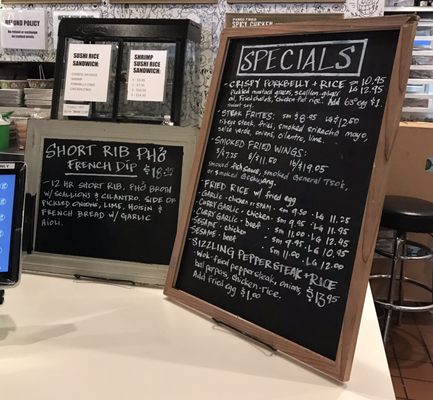 REFUND POLICY
SUSHI RICE
SANDWICH
SHRIMP
SUSHI RICE
SANDWICH
SPICY CHICKEN
SHORT RIB PHỞ
FRENCH DIP
$18.95
- 12 HR SHORT RIB, PHỞ BROTH
W/ SCALLIONS & CILANTRO. SIDE OF
PICKLED ONIONS, LIME, HOISIN &
FRENCH BREAD W/ GARLIC
AIOLI.
SPECIALS
- CRISPY PORKBELLY + RICE - 10.95
LG 12.95
pickled mustard greens,
oil, fried shallots, chicken-fat rice. Add 63° egg $1.
sweet soy
- STEAK FRIES - SM $8.95 LG $12.50
ribeye steak, fries, smoked sriracha mayo,
salsa verde, onions, cilantro, lime.
- SMOKED FRIED WINGS:
5/$7.25 8/$11.50 16/$19.05
smoked fish sauce, smoked general tso's,
or smoked
- FRIED RICE w/ fried egg
- GARLIC - chicken - SM 9.50 - LG 11.25
- CURRY GARLIC - chicken - SM 9.95 - LG 12.95
- CURRY GARLIC - beef - SM 11.00 - LG 12.95
- SESAME - chicken - SM 9.95 - LG 10.95
- SESAME - beef - SM 11.00 - LG 12.00
- SIZZLING PEPPERSTEAK + RICE
wok-fried peppersteak, onions, $13.95
bell peppers, chicken-rice.
Add fried egg $1.00